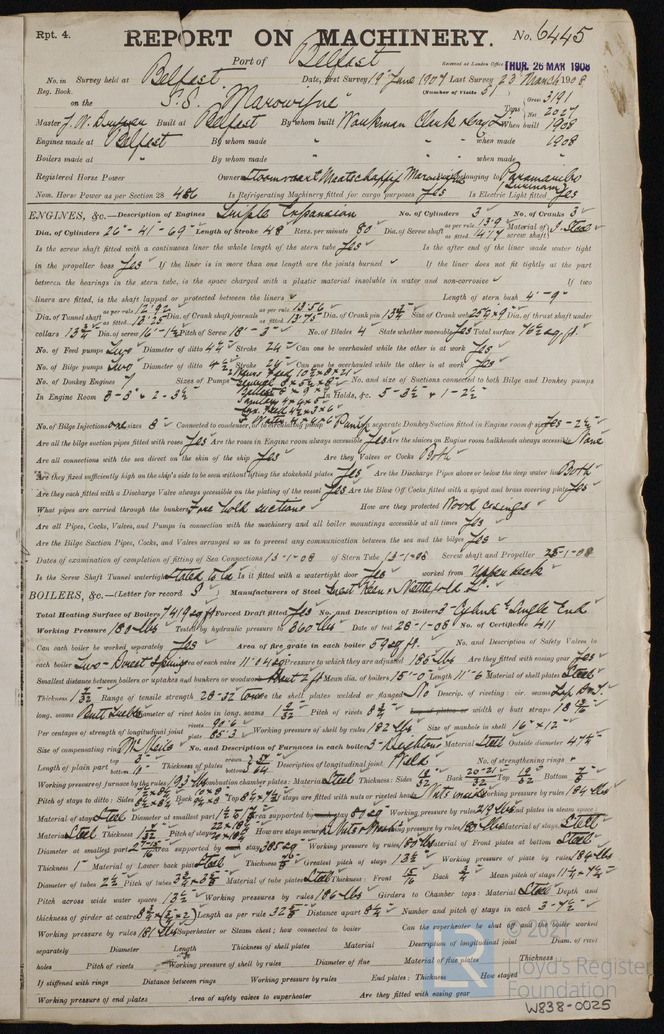 Rpt. 4.
REPORT ON MACHINERY.
No. 6445
Port of Belfast
Received at London Office THUR. 26 MAR 1908
No. in Survey held at Belfast Date, first Survey 19th June 1907 Last Survey 23rd March 1908
Reg. Book. (Number of Visits
on the S.S. Marowijne Gross 3191
Tons Net 2027
Master J. W. Built at Belfast By whom built Workman Clark & Co Ld When built 1908
Engines made at Belfast By whom made " when made 1908
Boilers made at " By whom made " when made "
Registered Horse Power Owners Stoomvaart Maatschappij Marowijne belonging to Paramaribo (Surinam)
Nom. Horse Power as per Section 28 486 Is Refrigerating Machinery fitted for cargo purposes Yes Is Electric Light fitted Yes
ENGINES, &c.—Description of Engines Triple Expansion No. of Cylinders 3 No. of Cranks 3
Dia. of Cylinders 26"-41"-69" Length of Stroke 48 Revs. per minute 80 Dia. of Screw shaft as per rule 13.9 as fitted 14.17 Material of screw shaft I. Steel
Is the screw shaft fitted with a continuous liner the whole length of the stern tube Yes Is the after end of the liner made water tight
in the propeller boss Yes If the liner is in more than one length are the joints burned If the liner does not fit tightly at the part
between the bearings in the stern tube, is the space charged with a plastic material insoluble in water and non-corrosive If two
liners are fitted, is the shaft lapped or protected between the liners Length of stern bush 4'-9"
Dia. of Tunnel shaft as per rule 12.92 as fitted 13.25 Dia. of Crank shaft journals as per rule 13.56 as fitted 13.75 Dia. of Crank pin 13 3/4 Size of Crank webs 25 1/4 x 9 Dia. of thrust shaft under
collars 13 3/4 Dia. of screw 16'-1 1/2 Pitch of Screw 18'-3" No. of Blades 4 State whether moveable Yes Total surface 76 1/2 sq. ft.
No. of Feed pumps Two Diameter of ditto 4 1/4 Stroke 24 Can one be overhauled while the other is at work Yes
No. of Bilge pumps Two Diameter of ditto 4 1/2 Stroke 24 Can one be overhauled while the other is at work Yes
No. of Donkey Engines 7 Sizes of Pumps No. and size of Suctions connected to both Bilge and Donkey pumps
In Engine Room 3-3" & 2-3 1/2 In Holds, &c. 5-3 1/2 & 1-2 1/2
No. of Bilge Injections one sizes 8 Connected to condenser, or to circulating pump Pump Is a separate Donkey Suction fitted in Engine room & size Yes - 2 1/2
Are all the bilge suction pipes fitted with roses Yes Are the roses in Engine room always accessible Yes Are the sluices on Engine room bulkheads always accessible None
Are all connections with the sea direct on the skin of the ship Yes Are they Valves or Cocks Both
Are they fixed sufficiently high on the ship's side to be seen without lifting the stokehold plates Yes Are the Discharge Pipes above or below the deep water line Both
Are they each fitted with a Discharge Valve always accessible on the plating of the vessel Yes Are the Blow Off Cocks fitted with a spigot and brass covering plate Yes
What pipes are carried through the bunkers Fore hold suctions How are they protected Wood casings
Are all Pipes, Cocks, Valves, and Pumps in connection with the machinery and all boiler mountings accessible at all times Yes
Are the Bilge Suction Pipes, Cocks, and Valves arranged so as to prevent any communication between the sea and the bilges Yes
Dates of examination of completion of fitting of Sea Connections 13-1-08 of Stern Tube 13-1-08 Screw shaft and Propeller 25-1-08
Is the Screw Shaft Tunnel watertight Stated to be Is it fitted with a watertight door Yes worked from Upper deck
BOILERS, &c.—(Letter for record S) Manufacturers of Steel Guest Keen & Nettlefold Ld
Total Heating Surface of Boilers 7419 sq ft Forced Draft fitted Yes No. and Description of Boilers 3 - Cylind & Single End
Working Pressure 180 lbs Tested by hydraulic pressure to 360 lbs Date of test 28-1-08 No. of Certificate 411
Can each boiler be worked separately Yes Area of fire grate in each boiler 59 sq ft. No. and Description of Safety Valves to
each boiler Two - Direct Spring Area of each valve 11.04 sq Pressure to which they are adjusted 185 lbs Are they fitted with easing gear Yes
Smallest distance between boilers or uptakes and bunkers or woodwork About 2 ft Mean dia. of boilers 15'-0 Length 11'-6 Material of shell plates Steel
Thickness Range of tensile strength 28-32 tons Are the shell plates welded or flanged No Descrip. of riveting: cir. seams Lap D.R.
long. seams Butt Treble Diameter of rivet holes in long. seams 1 9/32 Pitch of rivets 8 3/4 Lap of plates or width of butt straps
Per centages of strength of longitudinal joint rivets 90.6 plate 85.3 Working pressure of shell by rules 182 lbs Size of manhole in shell 16" x 12"
Size of compensating ring McNeils No. and Description of Furnaces in each boiler 3 - Deightons Material Steel Outside diameter 47 1/4
Length of plain part top bottom Thickness of plates crown bottom Description of longitudinal joint Weld No. of strengthening rings
Working pressure of furnace by the rules 193 lbs Combustion chamber plates: Material Steel Thickness: Sides Back Top Bottom
Pitch of stays to ditto: Sides Back Top If stays are fitted with nuts or riveted heads Nuts inside Working pressure by rules 184 lbs
Material of stays Steel Diameter at smallest part Area supported by each stay 80 sq Working pressure by rules 219 lbs End plates in steam space:
Material Steel Thickness Pitch of stays How are stays secured Working pressure by rules 180 lbs Material of stays Steel
Diameter at smallest part Area supported by each stay 385 sq Working pressure by rules 180 lbs Material of Front plates at bottom Steel
Thickness 1" Material of Lower back plate Steel Thickness Greatest pitch of stays 13 1/2 Working pressure of plate by rules 184 lbs
Diameter of tubes 2 1/2 Pitch of tubes Material of tube plates Steel Thickness: Front 15/16 Back 3/4 Mean pitch of stays
Pitch across wide water spaces 13 1/2 Working pressures by rules 186 lbs Girders to Chamber tops: Material Steel Depth and
thickness of girder at centre Length as per rule 32 Distance apart 8 1/4 Number and pitch of stays in each 3 - 7 1/2
Working pressure by rules 181 lbs Superheater or Steam chest; how connected to boiler Can the superheater be shut off and the boiler worked
separately Diameter Length Thickness of shell plates Material Description of longitudinal joint Diam. of rivet
holes Pitch of rivets Working pressure of shell by rules Diameter of flue Material of flue plates Thickness
If stiffened with rings Distance between rings Working pressure by rules End plates: Thickness How stayed
Working pressure of end plates Area of safety valves to superheater Are they fitted with easing gear
© 2021
Lloyd's Register
Foundation
W838-0025